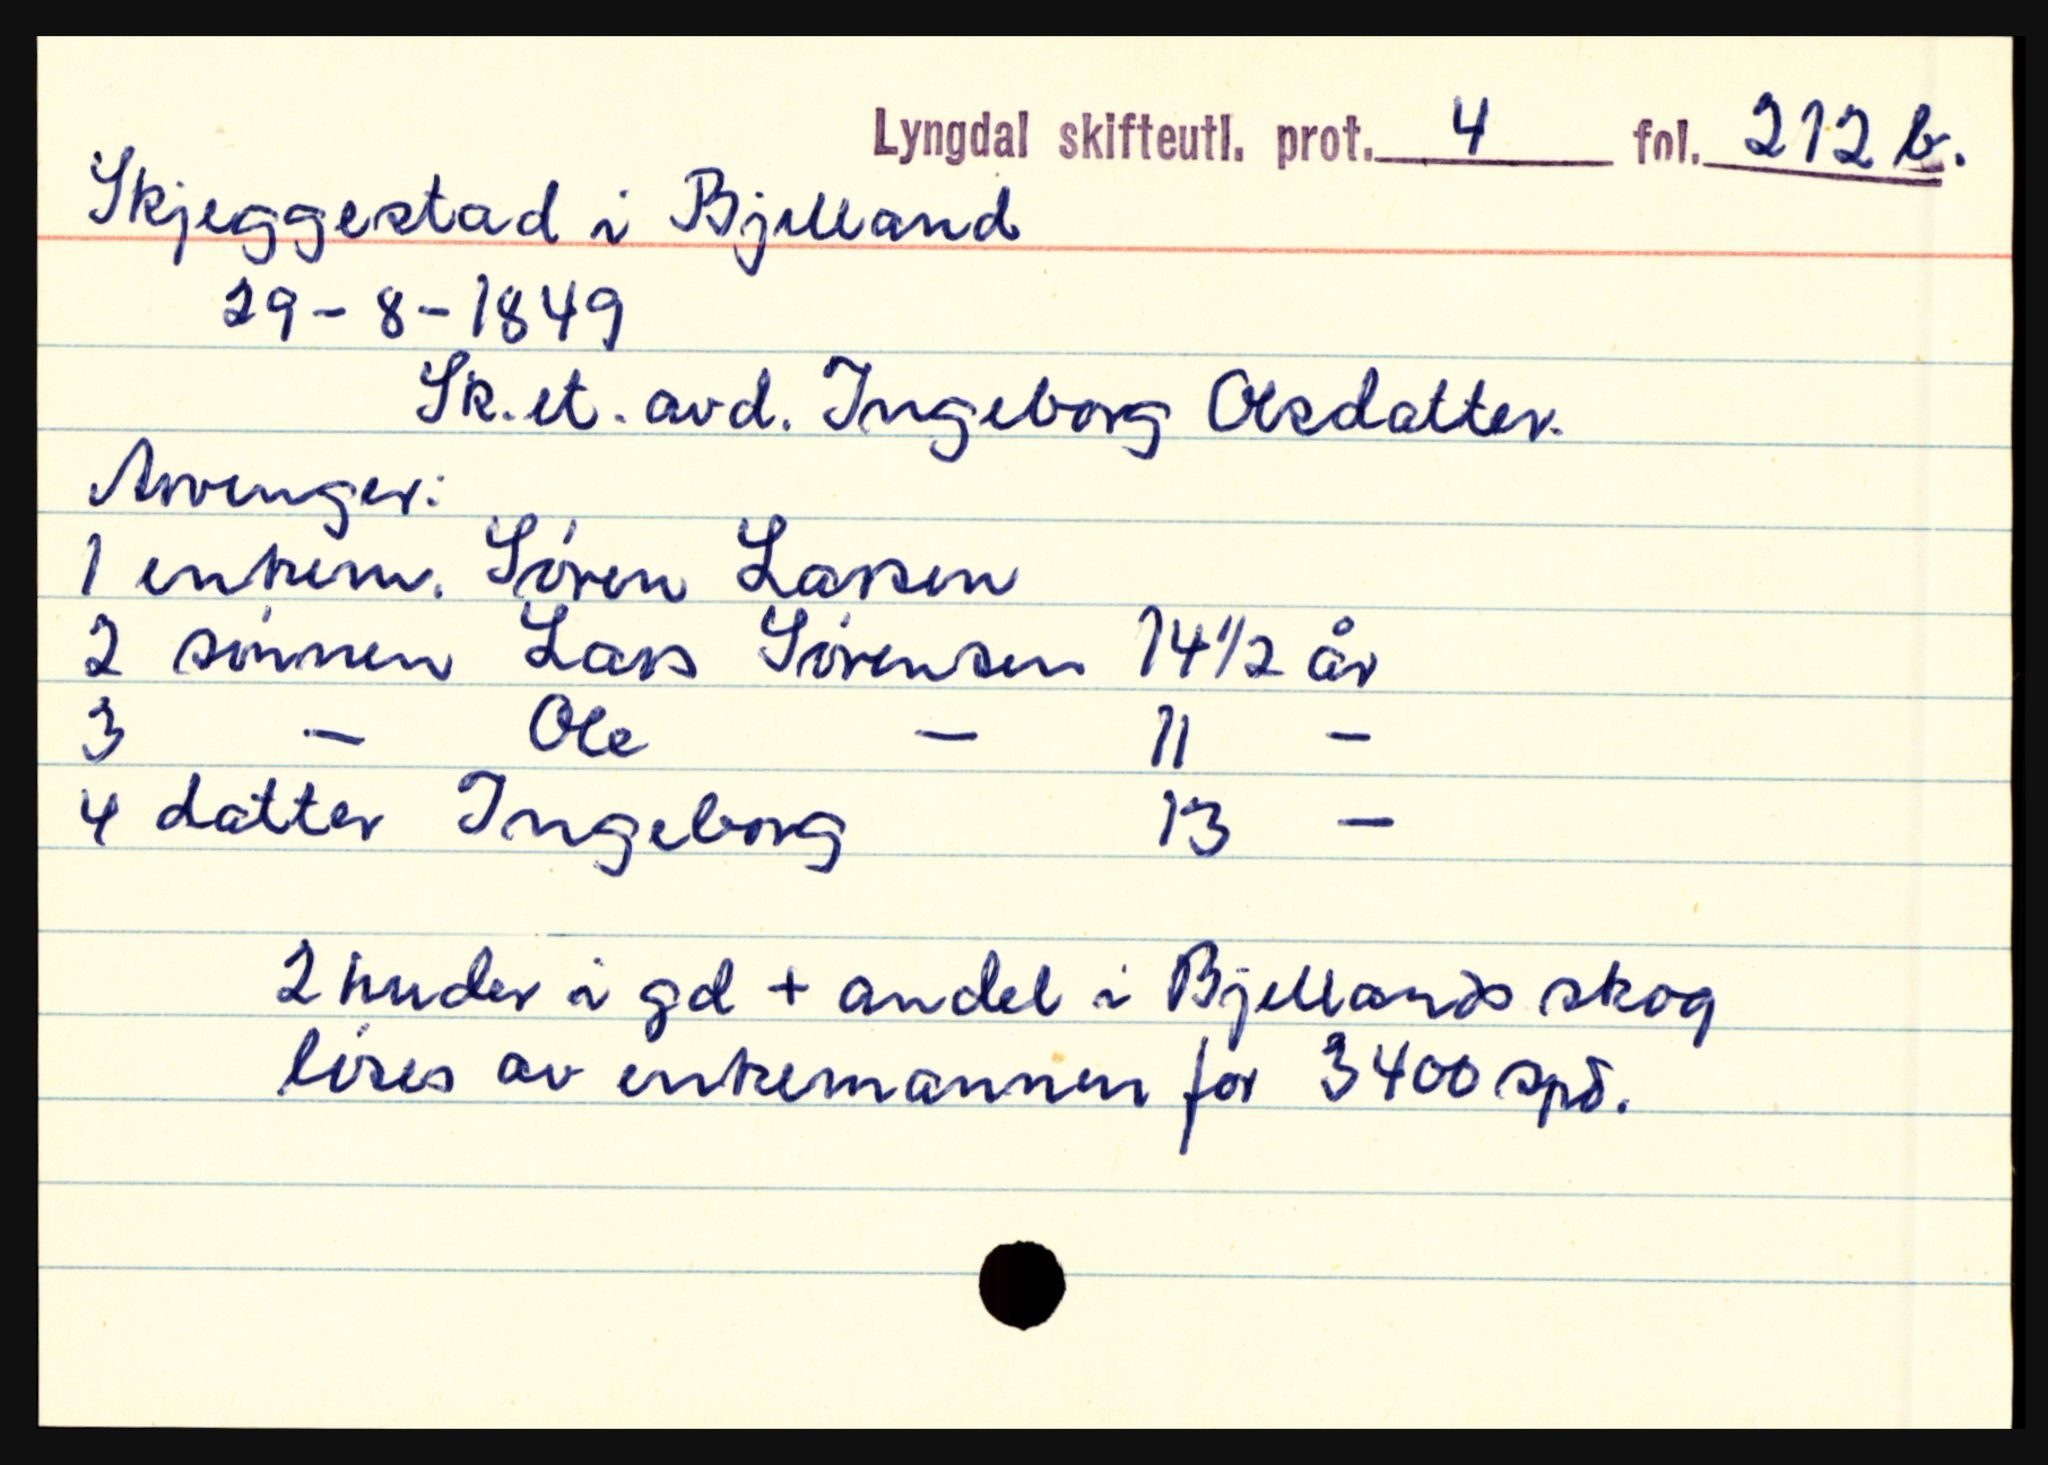 Lyngdal skifteutl. prot. 4 fol. 212 b.
Skjeggestad i Bjelland
29-8-1849
Sk. et. avd. Ingeborg Olsdatter.
Arvenger:
1 enkem. Søren Larsen
2 sønnen Lars Sørensen 14 1/2 år
3 - Ole - 11 -
4 datter Ingeborg 13 -
2 huder i gd + andel i Bjellands skog
løses av enkemannen for 3400 spd.